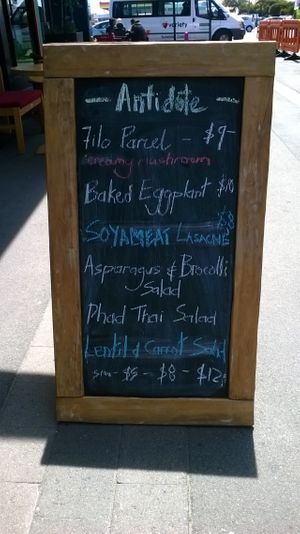 variety
- Antidote -
Filo Parcel - $9-
Creamy Mushroom
Baked Eggplant $10
$8
SOYAMEAT LASAGNE
Asparagus & Brocolli
Salad
Phad Thai Salad
Lentil & Carrot Salad
$5 - $8 - $12